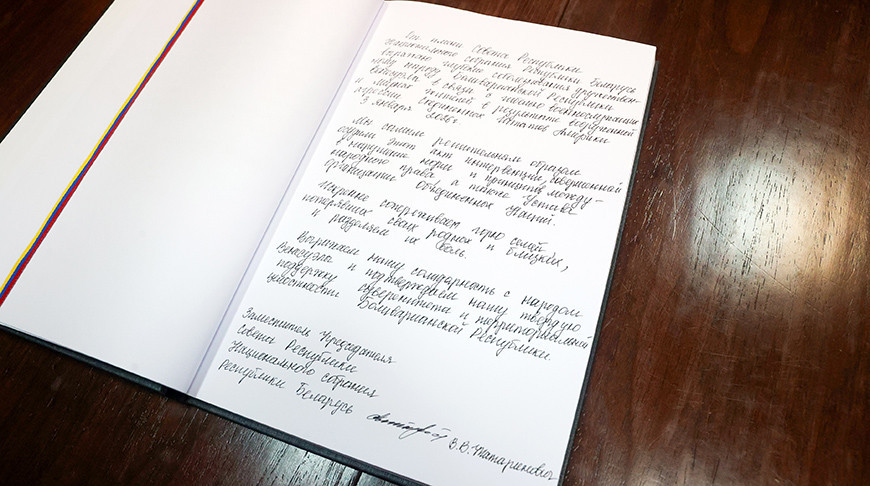 От имени Совета Республики
Национального собрания Республики Беларусь
выражаю глубокие соболезнования дружествен-
ному народу Боливарианской Республики
Венесуэла в связи с гибелью военнослужащих
и мирных жителей в результате вооруженной
агрессии Соединенных Штатов Америки
3 января 2026г.
Мы самым решительным образом
осудили этот акт интервенции, совершенной
в нарушение норм и принципов между-
народного права а также Устава
Организации Объединенных Наций.
Искренне сопереживаем горю семей
потерявших своих родных и близких,
и разделяем их боль.
Выражаем нашу солидарность с народом
Венесуэлы и подтверждаем нашу твердую
поддержку суверенитета и территориальной
целостности Боливарианской Республики.
Заместитель Председателя
Совета Республики
Национального собрания
Республики Беларусь
В.В. Татаринович